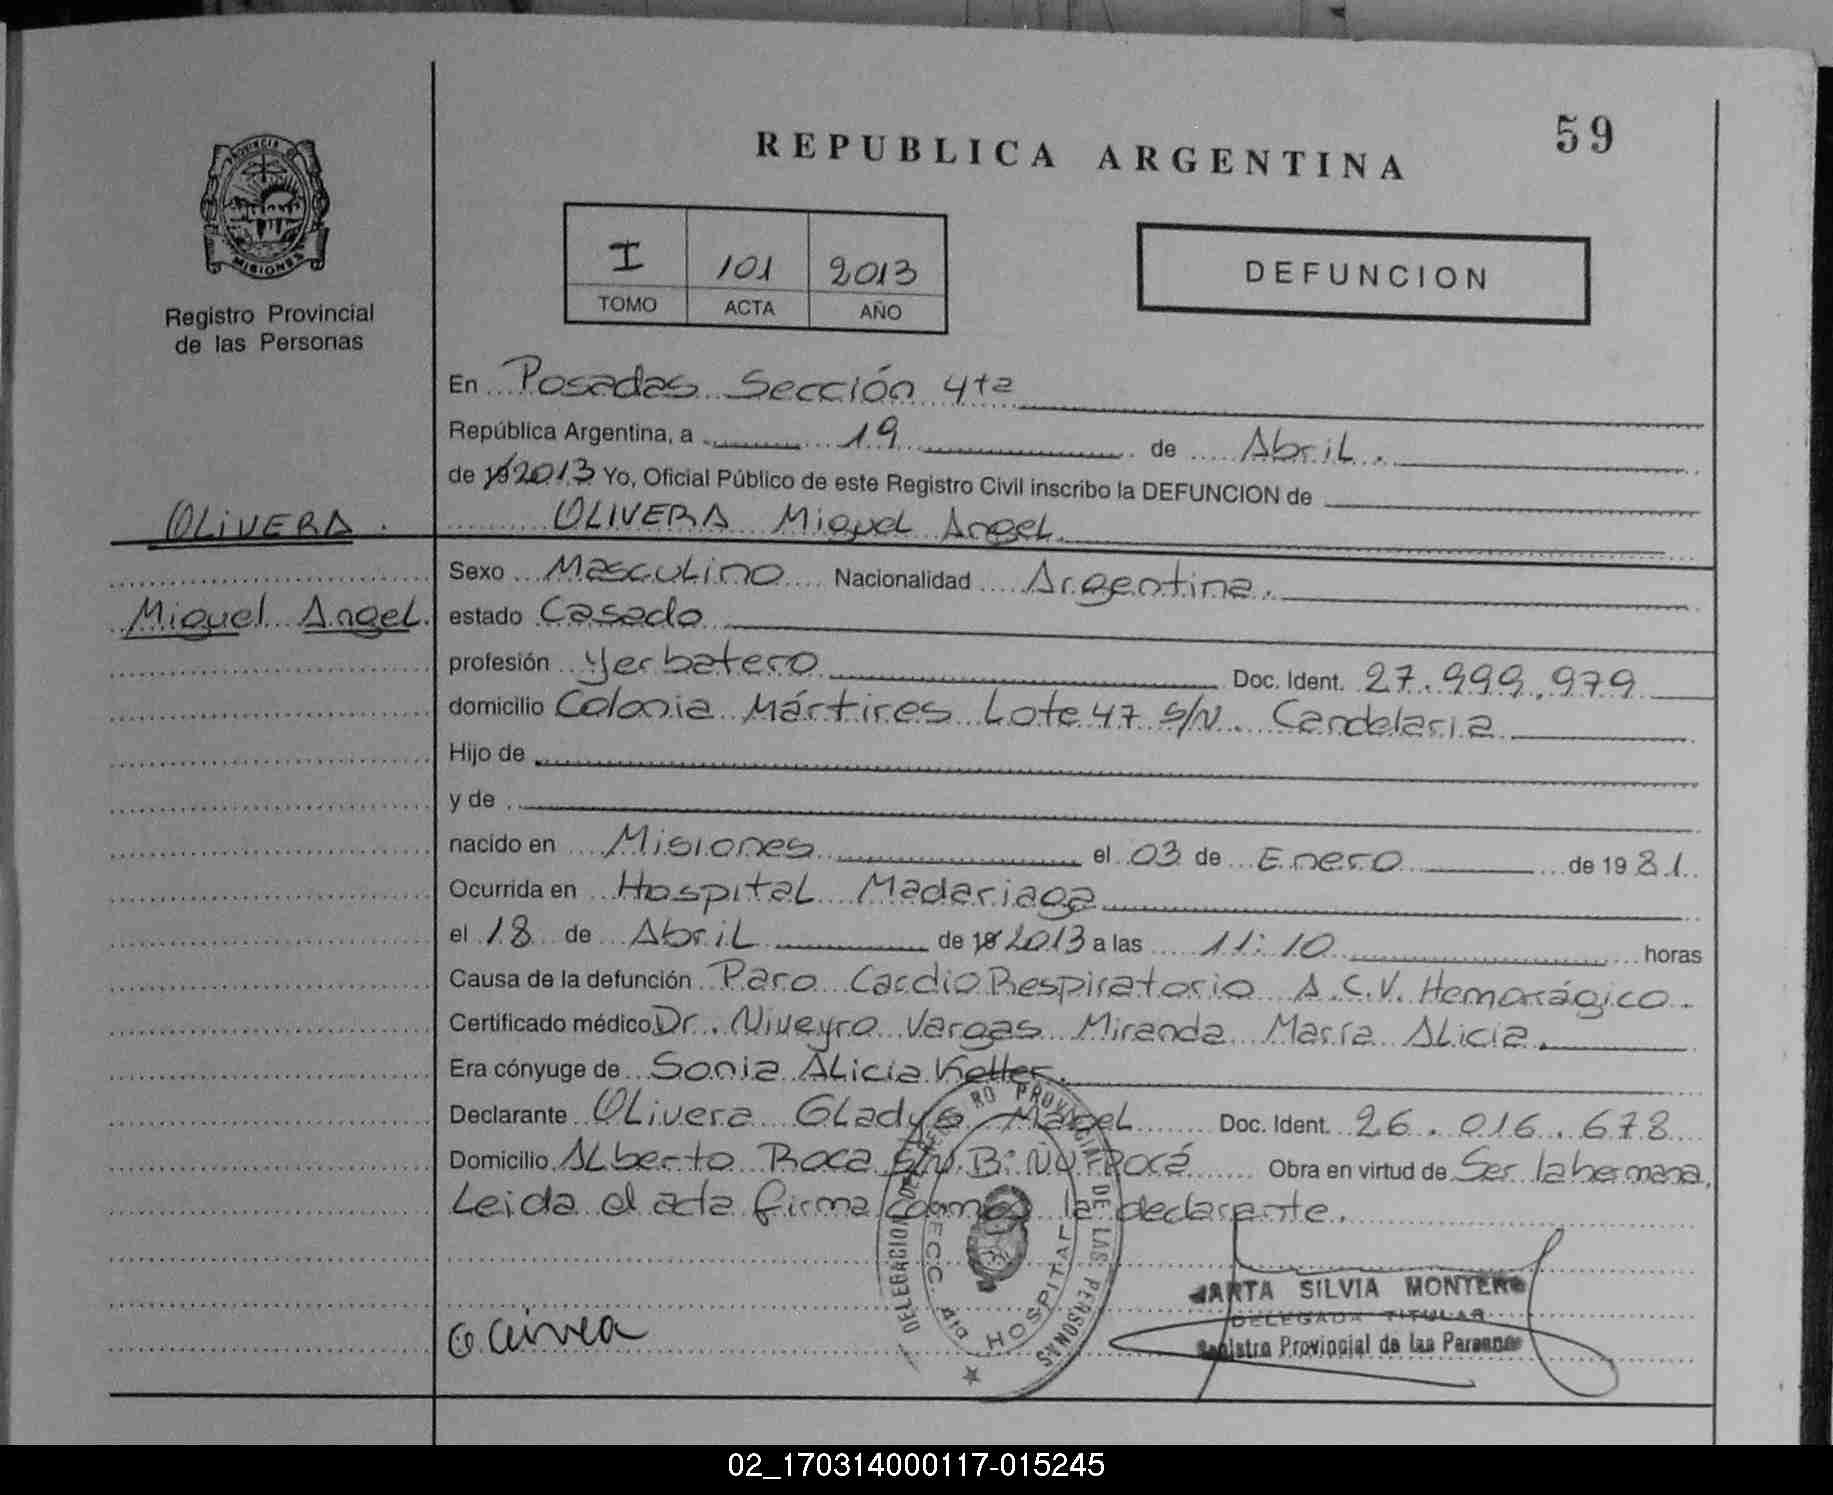 59
REPUBLICA ARGENTINA
PROVINCIA DE
MISIONES
Registro Provincial
de las Personas
I 101 2013
TOMO ACTA AÑO
DEFUNCION
En Posadas Sección 4ta
República Argentina, a 19 de Abril.
de 19 2013 Yo, Oficial Público de este Registro Civil inscribo la DEFUNCION de
OLIVERA.
OLIVERA Miguel Angel.
Sexo Masculino Nacionalidad Argentina.
Miguel Angel.
estado Casado
profesión Yerbatero Doc. Ident. 27.999.979
domicilio Colonia Mártires Lote 47 s/N. Candelaria
Hijo de
y de
nacido en Misiones el 03 de Enero de 1981.
Ocurrida en Hospital Madariaga
el 18 de Abril de 19 2013 a las 11:10 horas
Causa de la defunción Paro CardioRespiratorio A.C.V. Hemorrágico.
Certificado médico Dr. Niveyro Vargas Miranda María Alicia.
Era cónyuge de Sonia Alicia Keller.
Declarante Olivera Gladys Mabel Doc. Ident. 26.016.678
Domicilio Alberto Roca S/N B: Ñu Porá Obra en virtud de Ser la hermana,
Leida el acta firma la declarante.
DELEGACION PROVINCIAL DE LAS PERSONAS
SECC. 4ta HOSPITAL
MARTA SILVIA MONTERO
DELEGADA TITULAR
Registro Provincial de las Personas
02_170314000117-015245